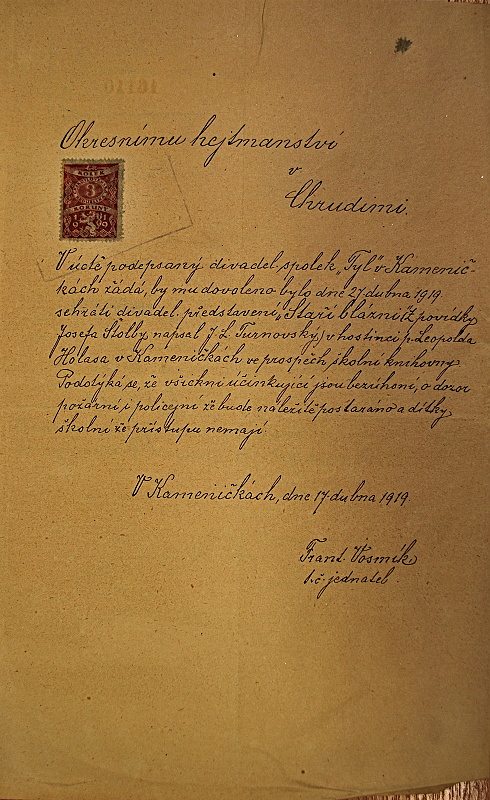 Okresnímu hejtmanství
v
Chrudimi.
KOLEK
3
KORUNY
V úctě podepsaný divadel. spolek „Tyl" v Kamenič-
kách žádá, by mu dovoleno bylo dne 27 dubna 1919.
sehráti divadel. představení „Staří blázni" (z povídky
Josefa Štolby napsal J. L. Turnovský) v hostinci p. Leopolda
Holasa v Kameničkách ve prospěch školní knihovny.
Podotýká se, že všichni účinkující jsou bezúhoní, o dozor
požární i policejní že bude náležitě postaráno a dítky
školní že přístupu nemají.
V Kameničkách, dne 17 dubna 1919.
Frant. Vosmík
t. č. jednatel.